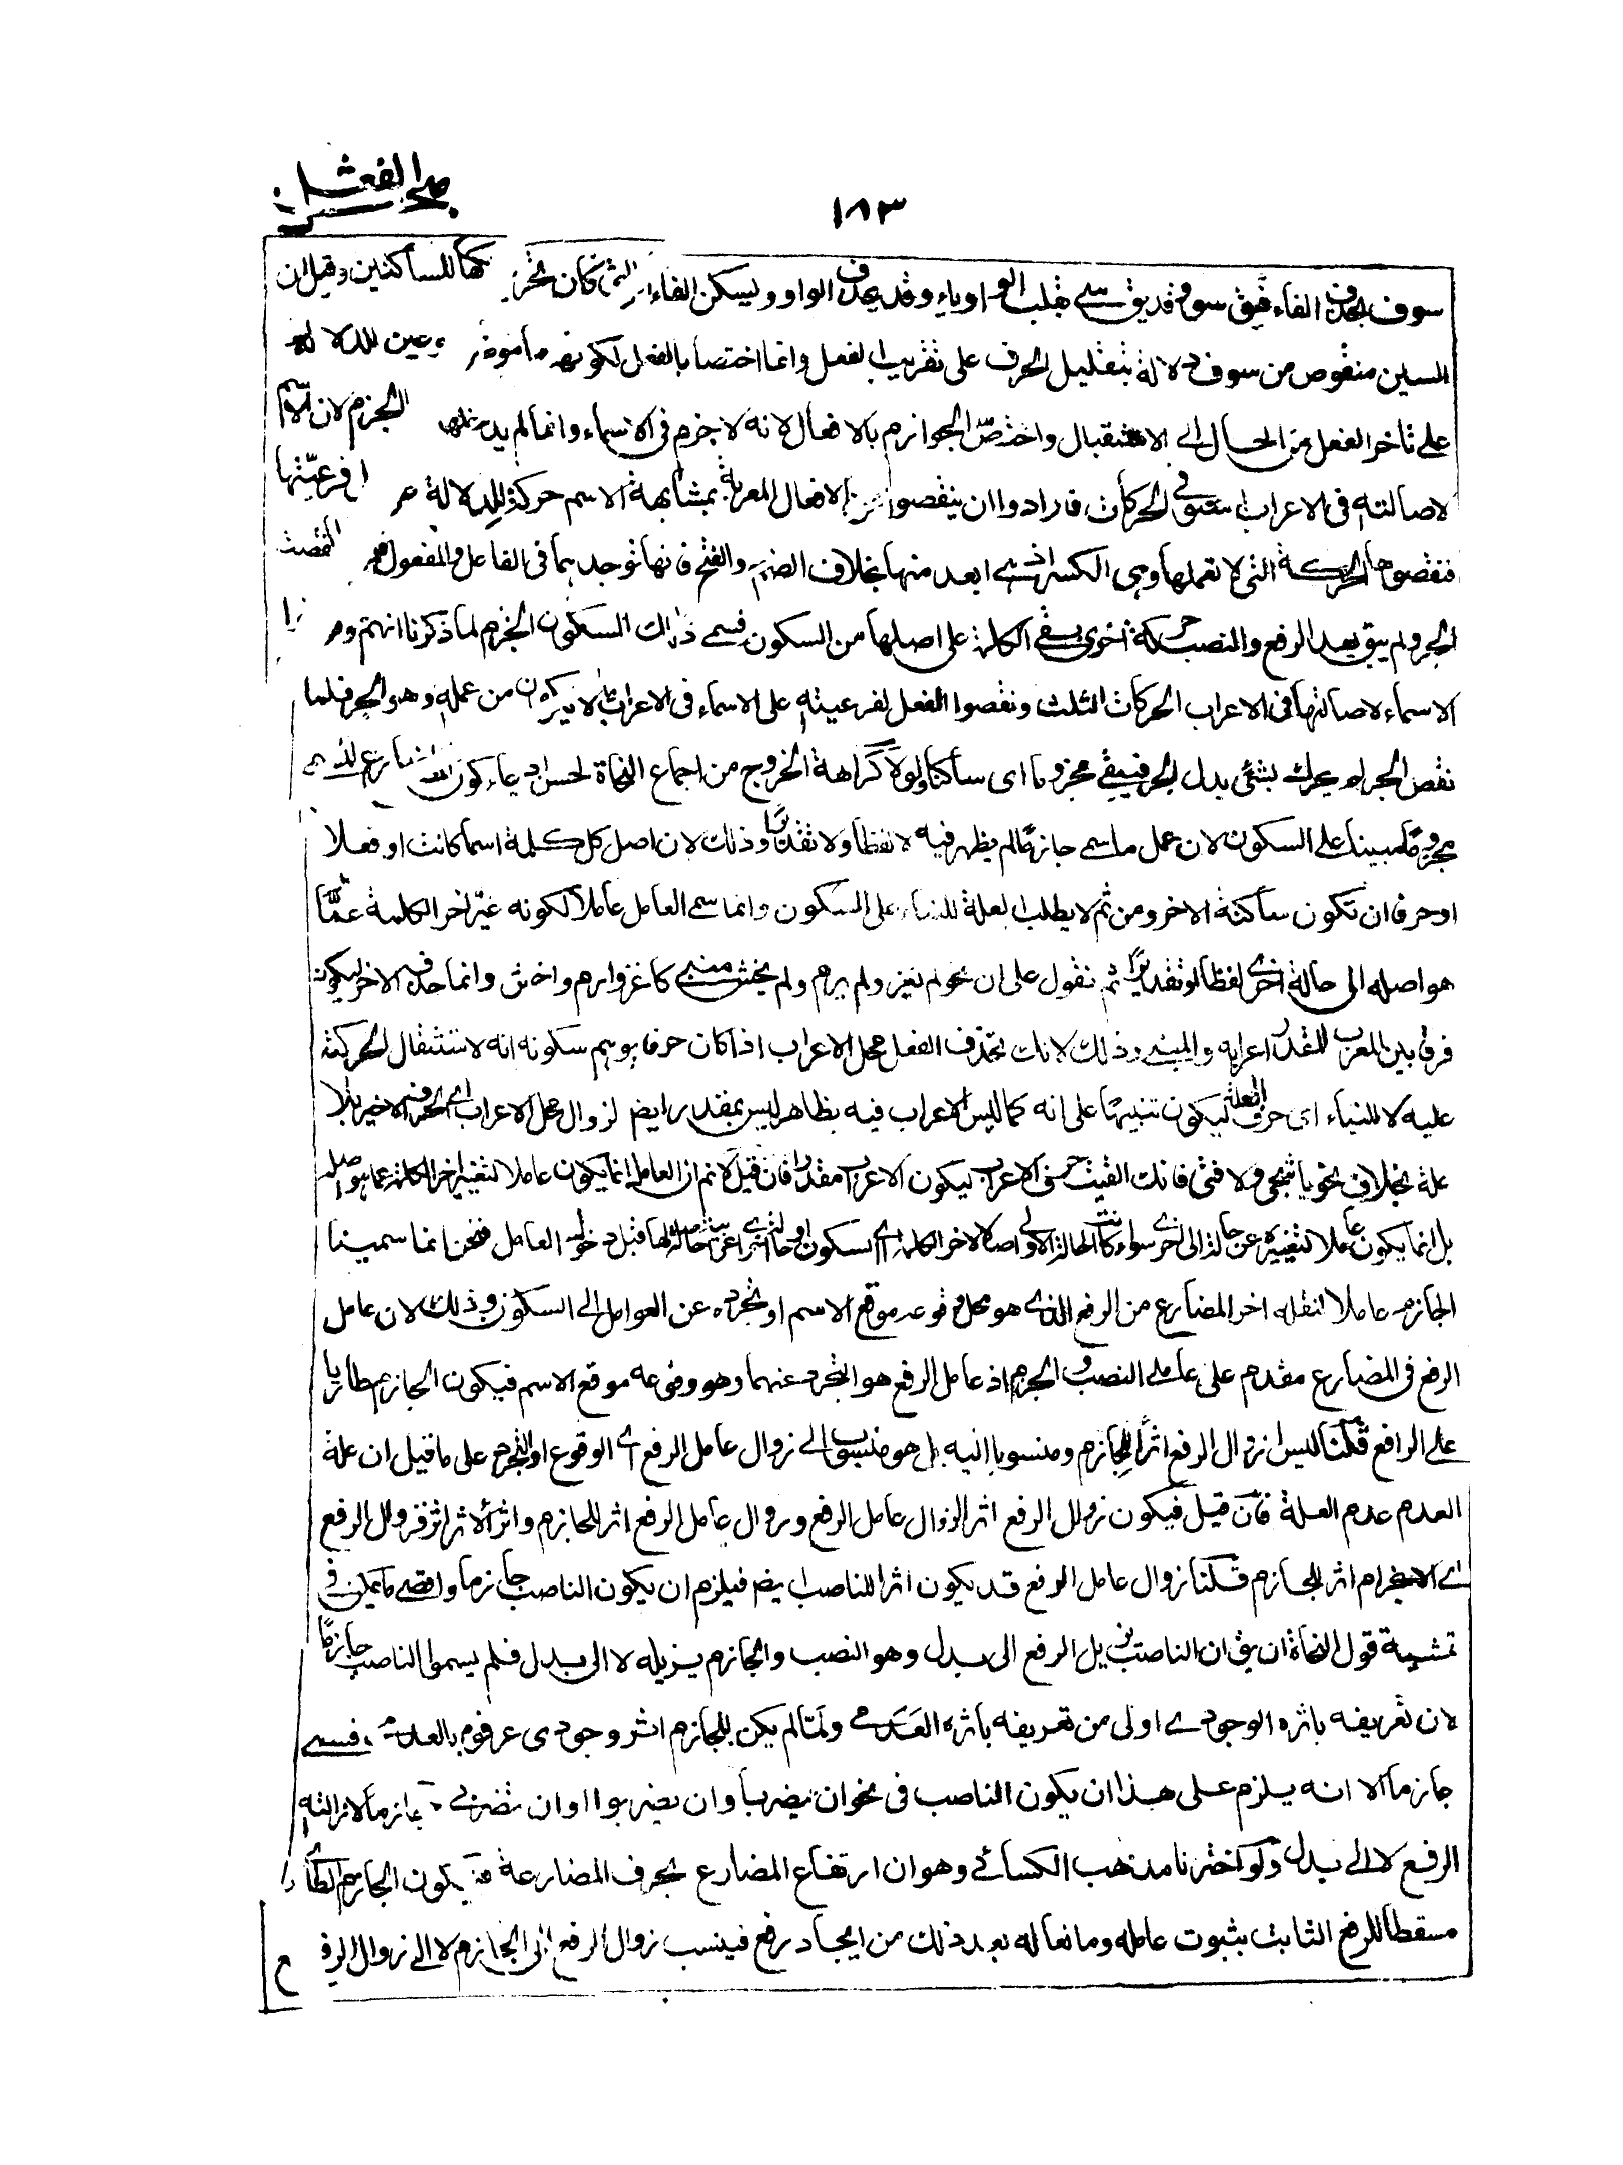 ١٨٣
سوف بحذف الفاء فيق سو وقد يق سى بقلب الواو ياء وقد يحذف الواو ويسكن الفاء التى كان تحركها للساكنين وقيل ان
السين منقوص من سوف دلالة بتقليل الحرف على تقريب الفعل وانما اختصا بالفعل لكونهما موضوعين للدلالة
على تأخر الفعل من الحال الى الاستقبال واختص الجوازم بالافعال لانه لا جزم فى الاسماء وانما لم يدخلها الجزم لان الاسم
لاصالته فى الاعراب استوفى الحركات فارادوا ان ينقصوا من الافعال المعربة بمشابهة الاسم حركة للدلالة فرعيتها
فنقصوها الحركة التى لا تعملها وهى الكسر اذ هى ابعد منها بخلاف الضم والفتح فانها توجدهما فى الفاعل والمفعول نقصت
الجر ولم يبق بعد الرفع والنصب حركة اخرى بقى الكلمة على اصلها من السكون فسمى ذلك السكون الجزم لما ذكرنا انهم
الاسماء لاصالتها فى الاعراب الحركات الثلث ونقصوا الفعل لفرعيته على الاسماء فى الاعراب ما لا يكون من عمله وهو الجر فلما
نقص الجر لم يحرك بشئ بدل الجر فيبقى مجزوما اى ساكنا ولولا كراهة الخروج من اجماع النحاة لحسن ادعاء كون المضارع المسمى
مجزوما مبنيا على السكون لان عمل ما سمى جازما لم يظهر فيه لا لفظا ولا تقديرا وذلك لان اصل كل كلمة اسما كانت او فعلا
او حرفا ان تكون ساكنة الاخر ومن ثم لا يطلب العلة للبناء على السكون وانما سمى العامل عاملا لكونه غيّر اخر الكلمة عما
هو اصله الى حالة اخرى لفظا او تقديرا ثم نقول على ان نحو لم يغز ولم يرم ولم يخش مبنى كاغز وارم واخش وانما حذف الاخر ليكون
فرقا بين المعرب المقدر اعرابه والمبنى وذلك لانك تحذف الفعل محل الاعراب اذا كان حرفا يوهم سكونه انه لاستثقال الحركة
عليه لا للبناء اى حرف العلة ليكون تنبيها على انه كما ليس الاعراب فيه بظاهر ليس بمقدر ايض لزوال محل الاعراب اى الحرف الاخير بلا
علة بخلاف نحو ياتجى ولا فتى فانك القيت حرف الاعراب ليكون الاعراب مقدرا فان قيل لا نم ان العامل انما يكون عاملا لتغييره اخر الكلمة عما هو اصله
بل انما يكون عاملا لتغييره عن حالة الى اخرى سواء كانت الحالة الاولى اصلا لاخر الكلمة اى السكون او حالة اخرى اعرابية حاصلة لها قبل دخول العامل فنحن انما سمينا
الجازم عاملا لنقله اخر المضارع من الرفع الذى هو محل وقوعه موقع الاسم او تجرده عن العوامل الى السكون وذلك لان عامل
الرفع فى المضارع مقدم على عاملى النصب والجزم اذ عامل الرفع هو التجرد عنهما وهو وقوعه موقع الاسم فيكون الجازم طاريا
على الرافع قلنا ليس زوال الرفع اثرا للجازم ومنسوبا اليه بل هو منسوب الى زوال عامل الرفع اى الوقوع او التجرد على ما قيل ان علة
العدم عدم العلة فان قيل فيكون زوال الرفع اثر الزوال عامل الرفع وزوال عامل الرفع اثر للجازم واثر الاثر اثر فزوال الرفع
اى الانجزام اثر للجازم قلنا زوال عامل الرفع قد يكون اثرا للناصب ايض فيلزم ان يكون الناصب جازما واقصى ما يمكن فى
تمشية قول النحاة ان يق ان الناصب يزيل الرفع الى بدل وهو النصب والجازم يزيله لا الى بدل فلم يسموا الناصب جازما
لان تعريفه باثره الوجودى اولى من تعريفه باثره العدمى ولما لم يكن للجازم اثر وجودى عرفوه بالعدمى فسمى
جازما الا انه يلزم على هذا ان يكون الناصب فى نحو ان يضربا وان يضربوا او ان تضربى جازما لازالته
الرفع لا الى بدل ولو اخترنا مذهب الكسائى وهو ان ارتفاع المضارع بحرف المضارعة فيكون الجازم الطارى
مسقطا للرفع الثابت بثبوت عامله ومانعا له بعد ذلك من ايجاد رفع فينسب زوال الرفع الى الجازم لا الى زوال الرفع